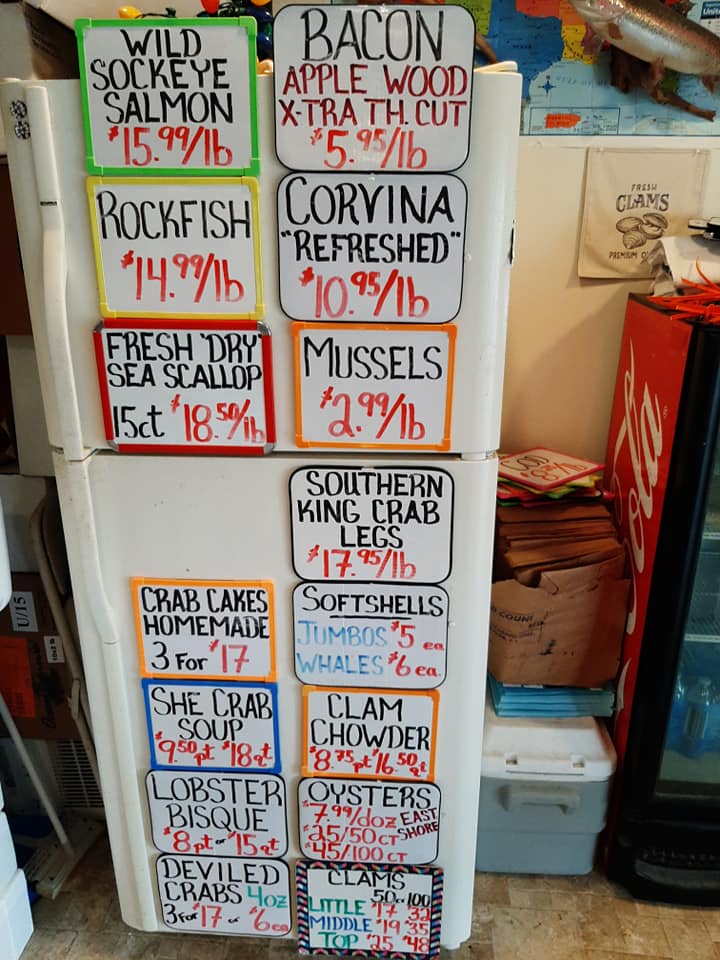 WILD
SOCKEYE
SALMON
$15.99/lb
BACON
APPLE WOOD
X-TRA TH. CUT
$5.95/lb
ROCKFISH
$14.99/lb
CORVINA
"REFRESHED"
$10.95/lb
FRESH "DRY"
SEA SCALLOP
15ct $18.50/lb
MUSSELS
$2.99/lb
SOUTHERN
KING CRAB
LEGS
$17.95/lb
CRAB CAKES
HOMEMADE
3 FOR $17
SOFTSHELLS
JUMBOS $5 ea.
WHALES $6 ea.
SHE CRAB
SOUP
$9.50 pt $18 qt
CLAM
CHOWDER
$8.75 pt $16.50 qt
LOBSTER
BISQUE
$8 pt or $15 qt
OYSTERS
$7.99/doz EAST
$25/50 CT SHORE
$45/100 CT
DEVILED
CRABS 4oz
3 for $17 or $6 ea
CLAMS
50 or 100
LITTLE $17 $32
MIDDLE $19 $35
TOP $25 $48
FRESH
CLAMS
PREMIUM
Cola
U/15
COUNT
COD